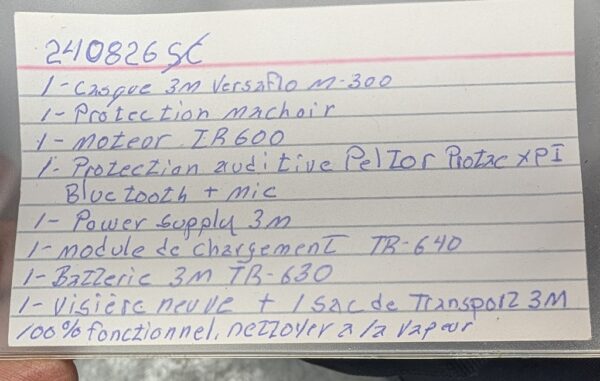 240826SC
1-Casque 3M Versaflo M-300
1-Protection machoir
1-moteor TR600
1-Protection auditive Peltor Protac XPI
Bluetooth + mic
1-Power supply 3M
1-module de chargement TR-640
1-Batterie 3M TR-630
1-visière neuve + 1 sac de Transport 3M
100% fonctionnel, nettoyer a la vapeur